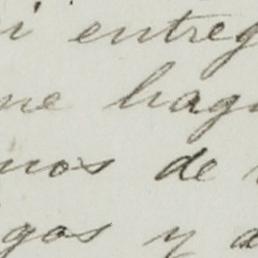 i entreg
ne hag
nos de
gos y a